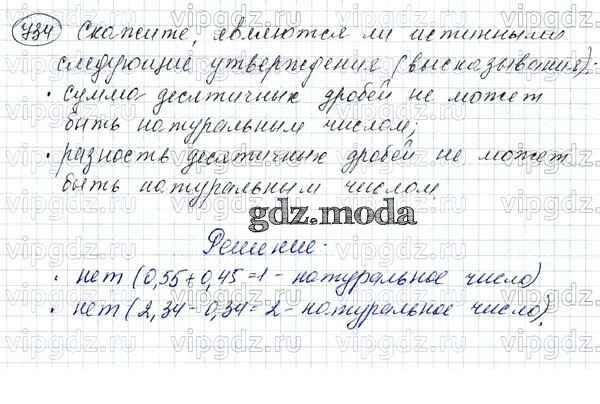 734 Скажите, являются ли истинными
следующие утверждения (высказывания):
• сумма десятичных дробей не может
быть натуральным числом;
• разность десятичных дробей не может
быть натуральным числом.
gdz.moda
Решение.
• нет (0,55+0,45=1 - натуральное число)
• нет (2,34-0,34=2 - натуральное число).